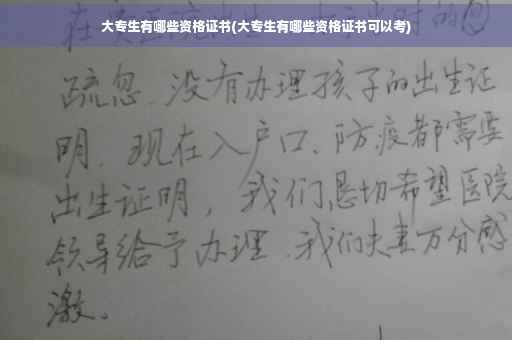 大专生有哪些资格证书(大专生有哪些资格证书可以考)
疏忽、没有办理孩子的出生证
明、现在入户口、防疫都需要
出生证明，我们恳切希望医院
领导给予办理、我们夫妻万分感
激。